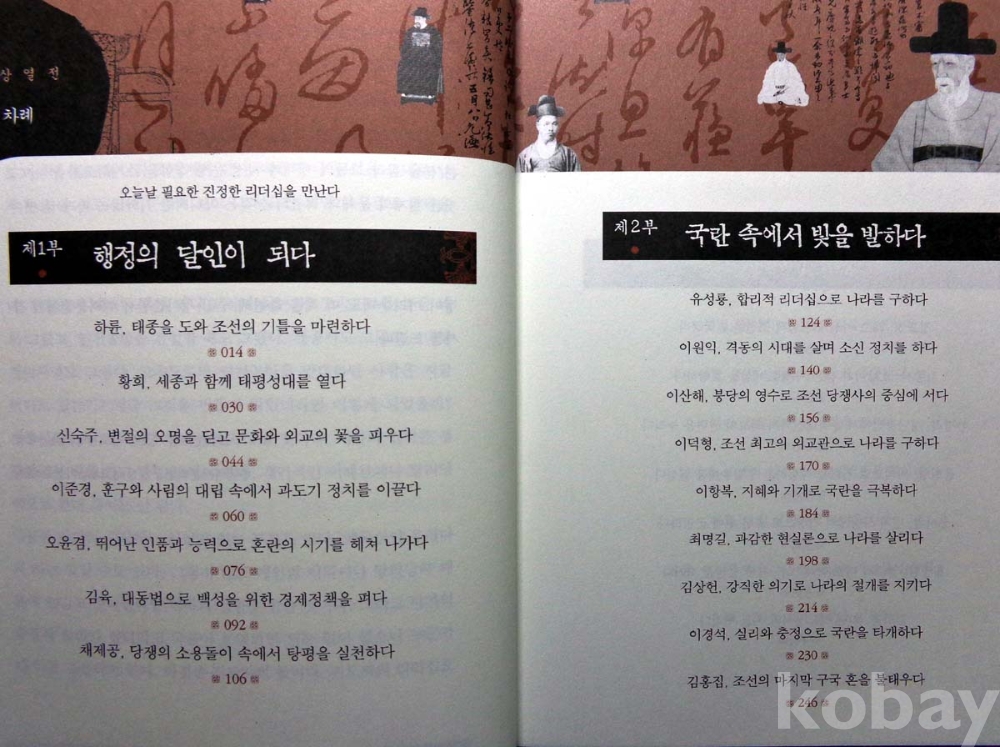 상열전
차례
오늘날 필요한 진정한 리더십을 만난다
제1부 행정의 달인이 되다
하륜, 태종을 도와 조선의 기틀을 마련하다
014
황희, 세종과 함께 태평성대를 열다
030
신숙주, 변절의 오명을 딛고 문화와 외교의 꽃을 피우다
044
이준경, 훈구와 사림의 대립 속에서 과도기 정치를 이끌다
060
오윤겸, 뛰어난 인품과 능력으로 혼란의 시기를 헤쳐 나가다
076
김육, 대동법으로 백성을 위한 경제정책을 펴다
092
채제공, 당쟁의 소용돌이 속에서 탕평을 실천하다
106
제2부 국란 속에서 빛을 발하다
유성룡, 합리적 리더십으로 나라를 구하다
124
이원익, 격동의 시대를 살며 소신 정치를 하다
140
이산해, 붕당의 영수로 조선 당쟁사의 중심에 서다
156
이덕형, 조선 최고의 외교관으로 나라를 구하다
170
이항복, 지혜와 기개로 국란을 극복하다
184
최명길, 과감한 현실론으로 나라를 살리다
198
김상헌, 강직한 의기로 나라의 절개를 지키다
214
이경석, 실리와 충정으로 국란을 타개하다
230
김홍집, 조선의 마지막 구국 혼을 불태우다
246
kobay